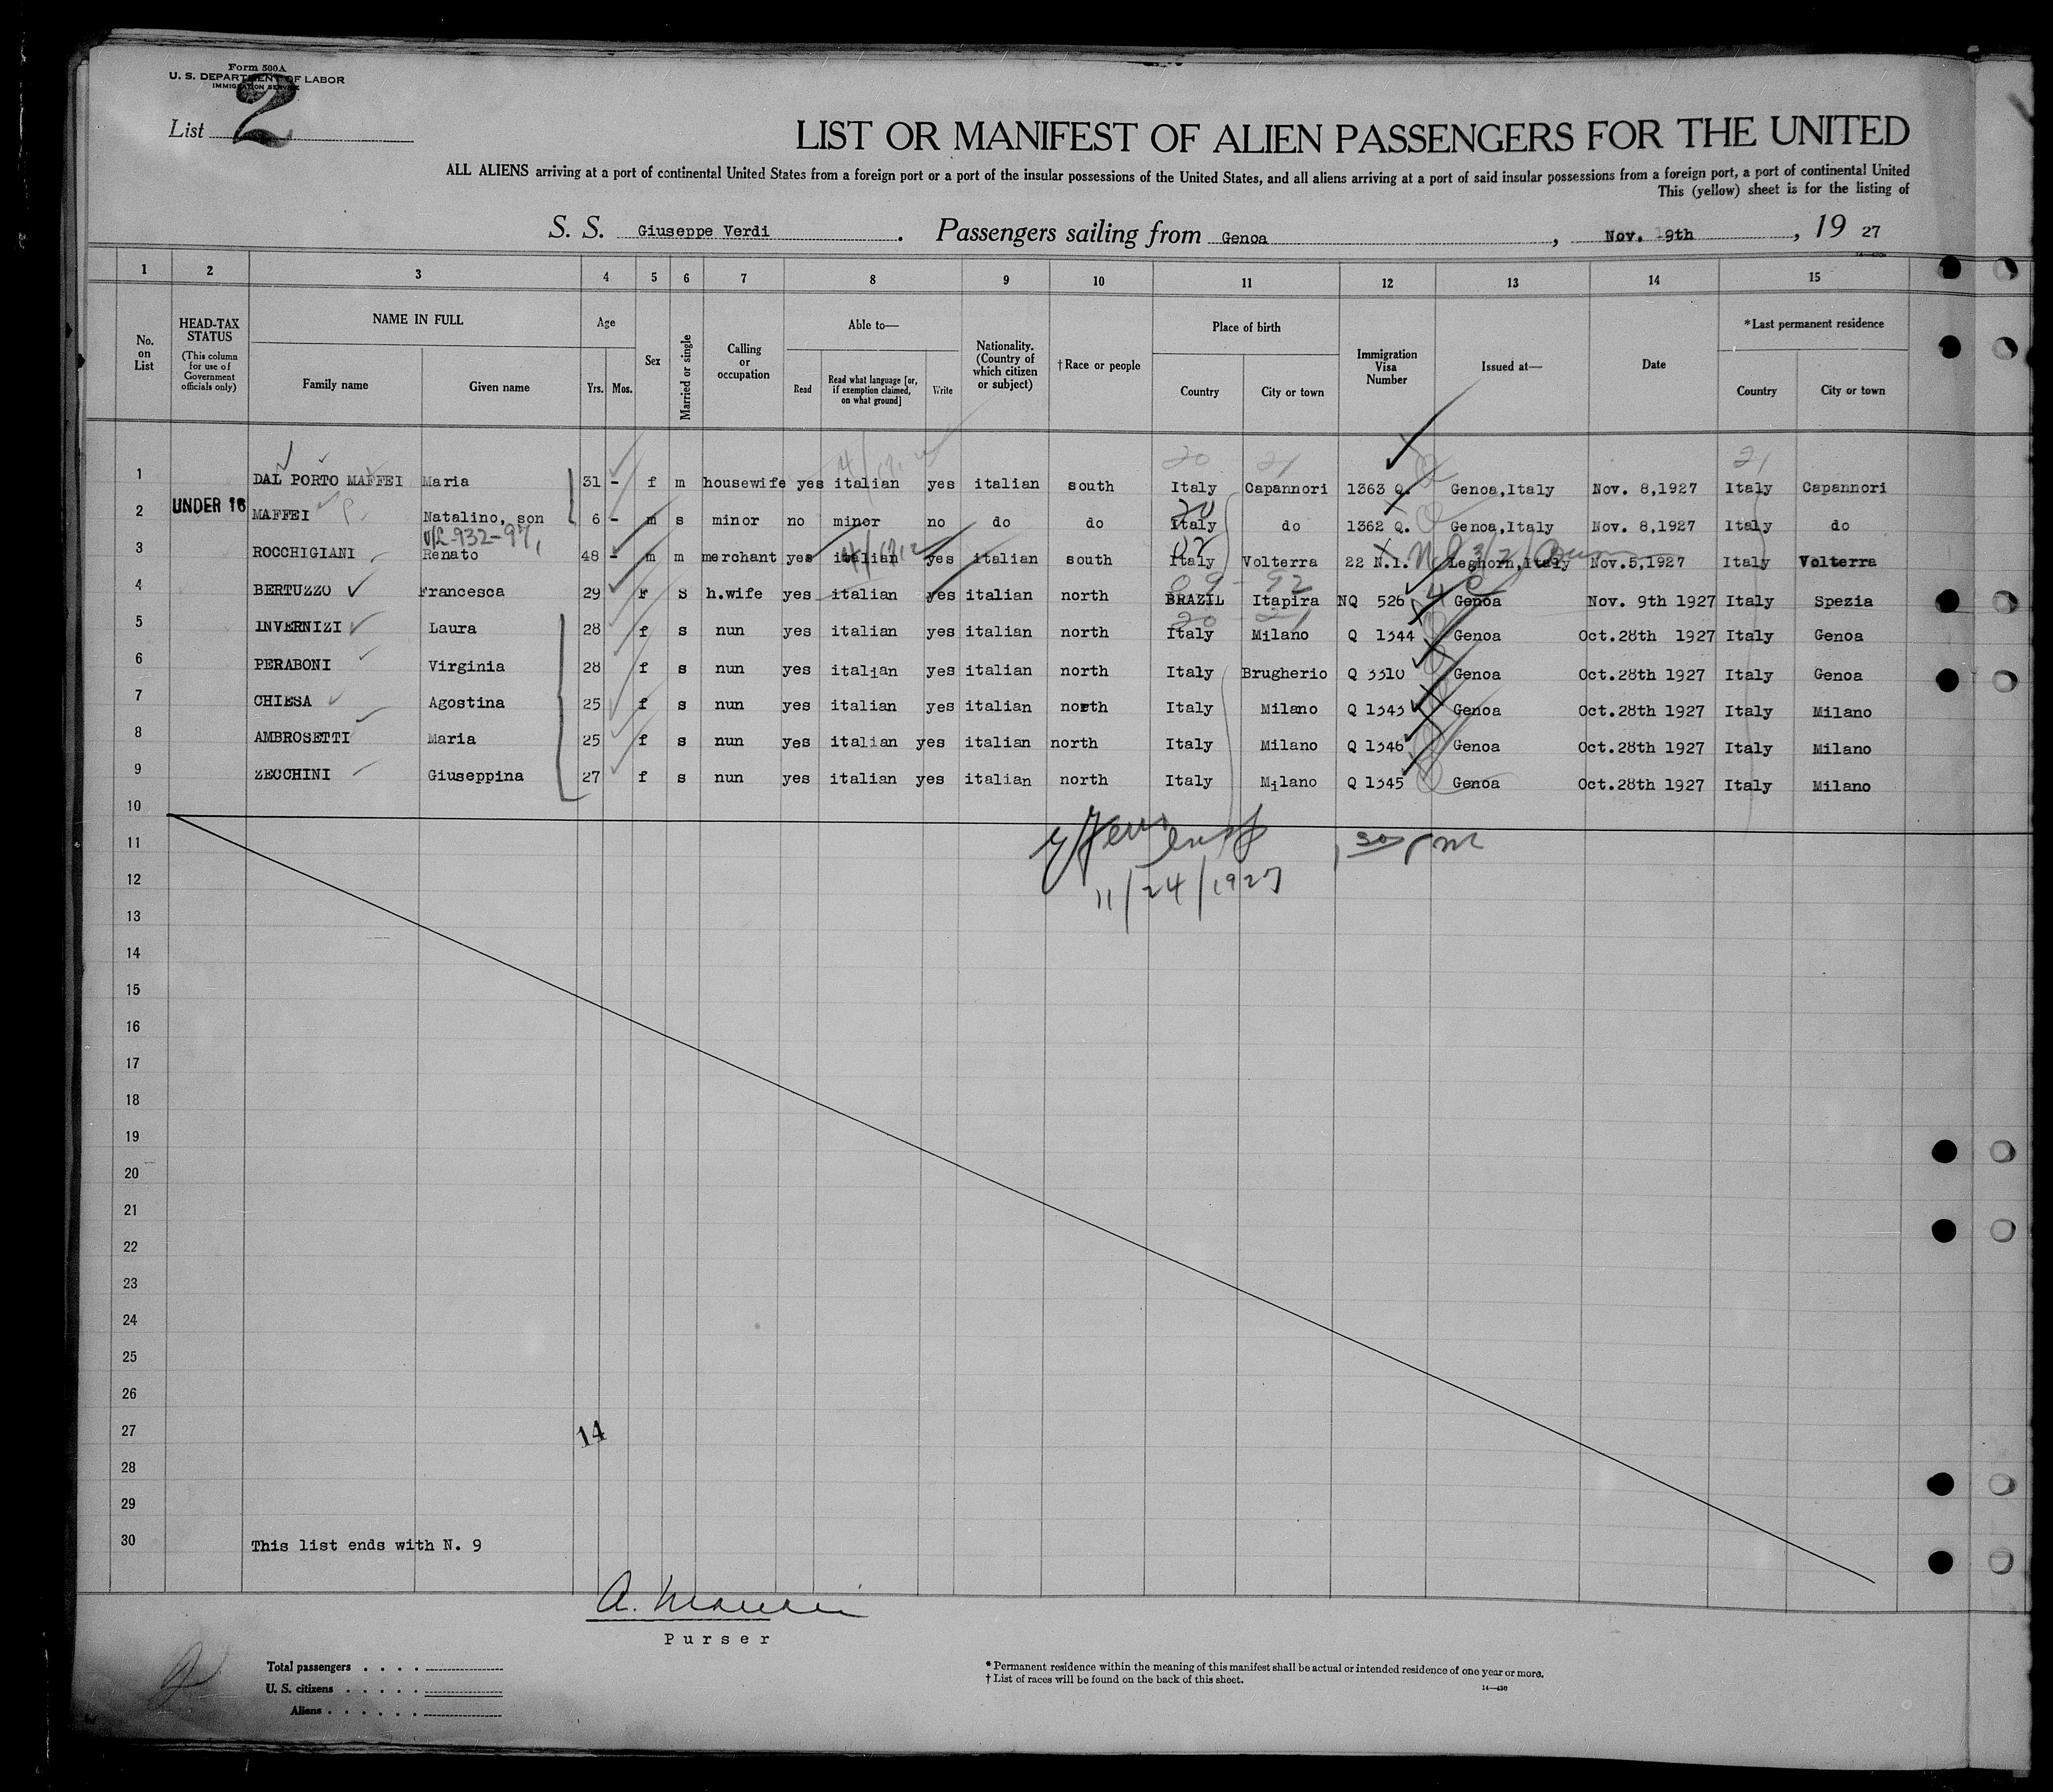 Form 500A
U. S. DEPARTMENT OF LABOR
IMMIGRATION SERVICE
List 2
LIST OR MANIFEST OF ALIEN PASSENGERS FOR THE UNITED
ALL ALIENS arriving at a port of continental United States from a foreign port or a port of the insular possessions of the United States, and all aliens arriving at a port of said insular possessions from a foreign port, a port of continental United
This (yellow) sheet is for the listing of
S. S. Giuseppe Verdi. Passengers sailing from Genoa, Nov. 9th, 19 27
1 2 3 4 5 6 7 8 9 10 11 12 13 14 15
No. on List
HEAD-TAX STATUS (This column for use of Government officials only)
NAME IN FULL
Family name Given name
Age
Yrs. Mos.
Sex
Married or single
Calling or occupation
Able to—
Read
Read what language [or, if exemption claimed, on what ground]
Write
Nationality. (Country of which citizen or subject)
†Race or people
Place of birth
Country City or town
Immigration Visa Number
Issued at—
Date
*Last permanent residence
Country City or town
20 21 21
1 DAL PORTO MAFFEI Maria 31 - f m housewife yes italian yes italian south Italy Capannori 1363 Q. Genoa,Italy Nov. 8,1927 Italy Capannori
2 UNDER 16 MAFFEI Natalino, son 6 - m s minor no minor no do do Italy do 1362 Q. Genoa,Italy Nov. 8,1927 Italy do
3 ROCCHIGIANI Renato 48 - m m merchant yes italian yes italian south Italy Volterra 22 N.I. Leghorn,Italy Nov.5,1927 Italy Volterra
4 BERTUZZO Francesca 29 F S h.wife yes italian yes italian north BRAZIL Itapira NQ 526 Genoa Nov. 9th 1927 Italy Spezia
5 INVERNIZI Laura 28 f s nun yes italian yes italian north Italy Milano Q 1344 Genoa Oct.28th 1927 Italy Genoa
6 PERABONI Virginia 28 f s nun yes italian yes italian north Italy Brugherio Q 3310 Genoa Oct.28th 1927 Italy Genoa
7 CHIESA Agostina 25 f s nun yes italian yes italian north Italy Milano Q 1343 Genoa Oct.28th 1927 Italy Milano
8 AMBROSETTI Maria 25 f s nun yes italian yes italian north Italy Milano Q 1346 Genoa Oct.28th 1927 Italy Milano
9 ZECCHINI Giuseppina 27 f s nun yes italian yes italian north Italy Milano Q 1345 Genoa Oct.28th 1927 Italy Milano
10
11
12 11/24/1927
13
14
15
16
17
18
19
20
21
22
23
24
25
26
27 14
28
29
30 This list ends with N. 9
Purser
Total passengers . . . .
U. S. citizens . . . . .
Aliens . . . . . .
* Permanent residence within the meaning of this manifest shall be actual or intended residence of one year or more.
† List of races will be found on the back of this sheet.
14—430